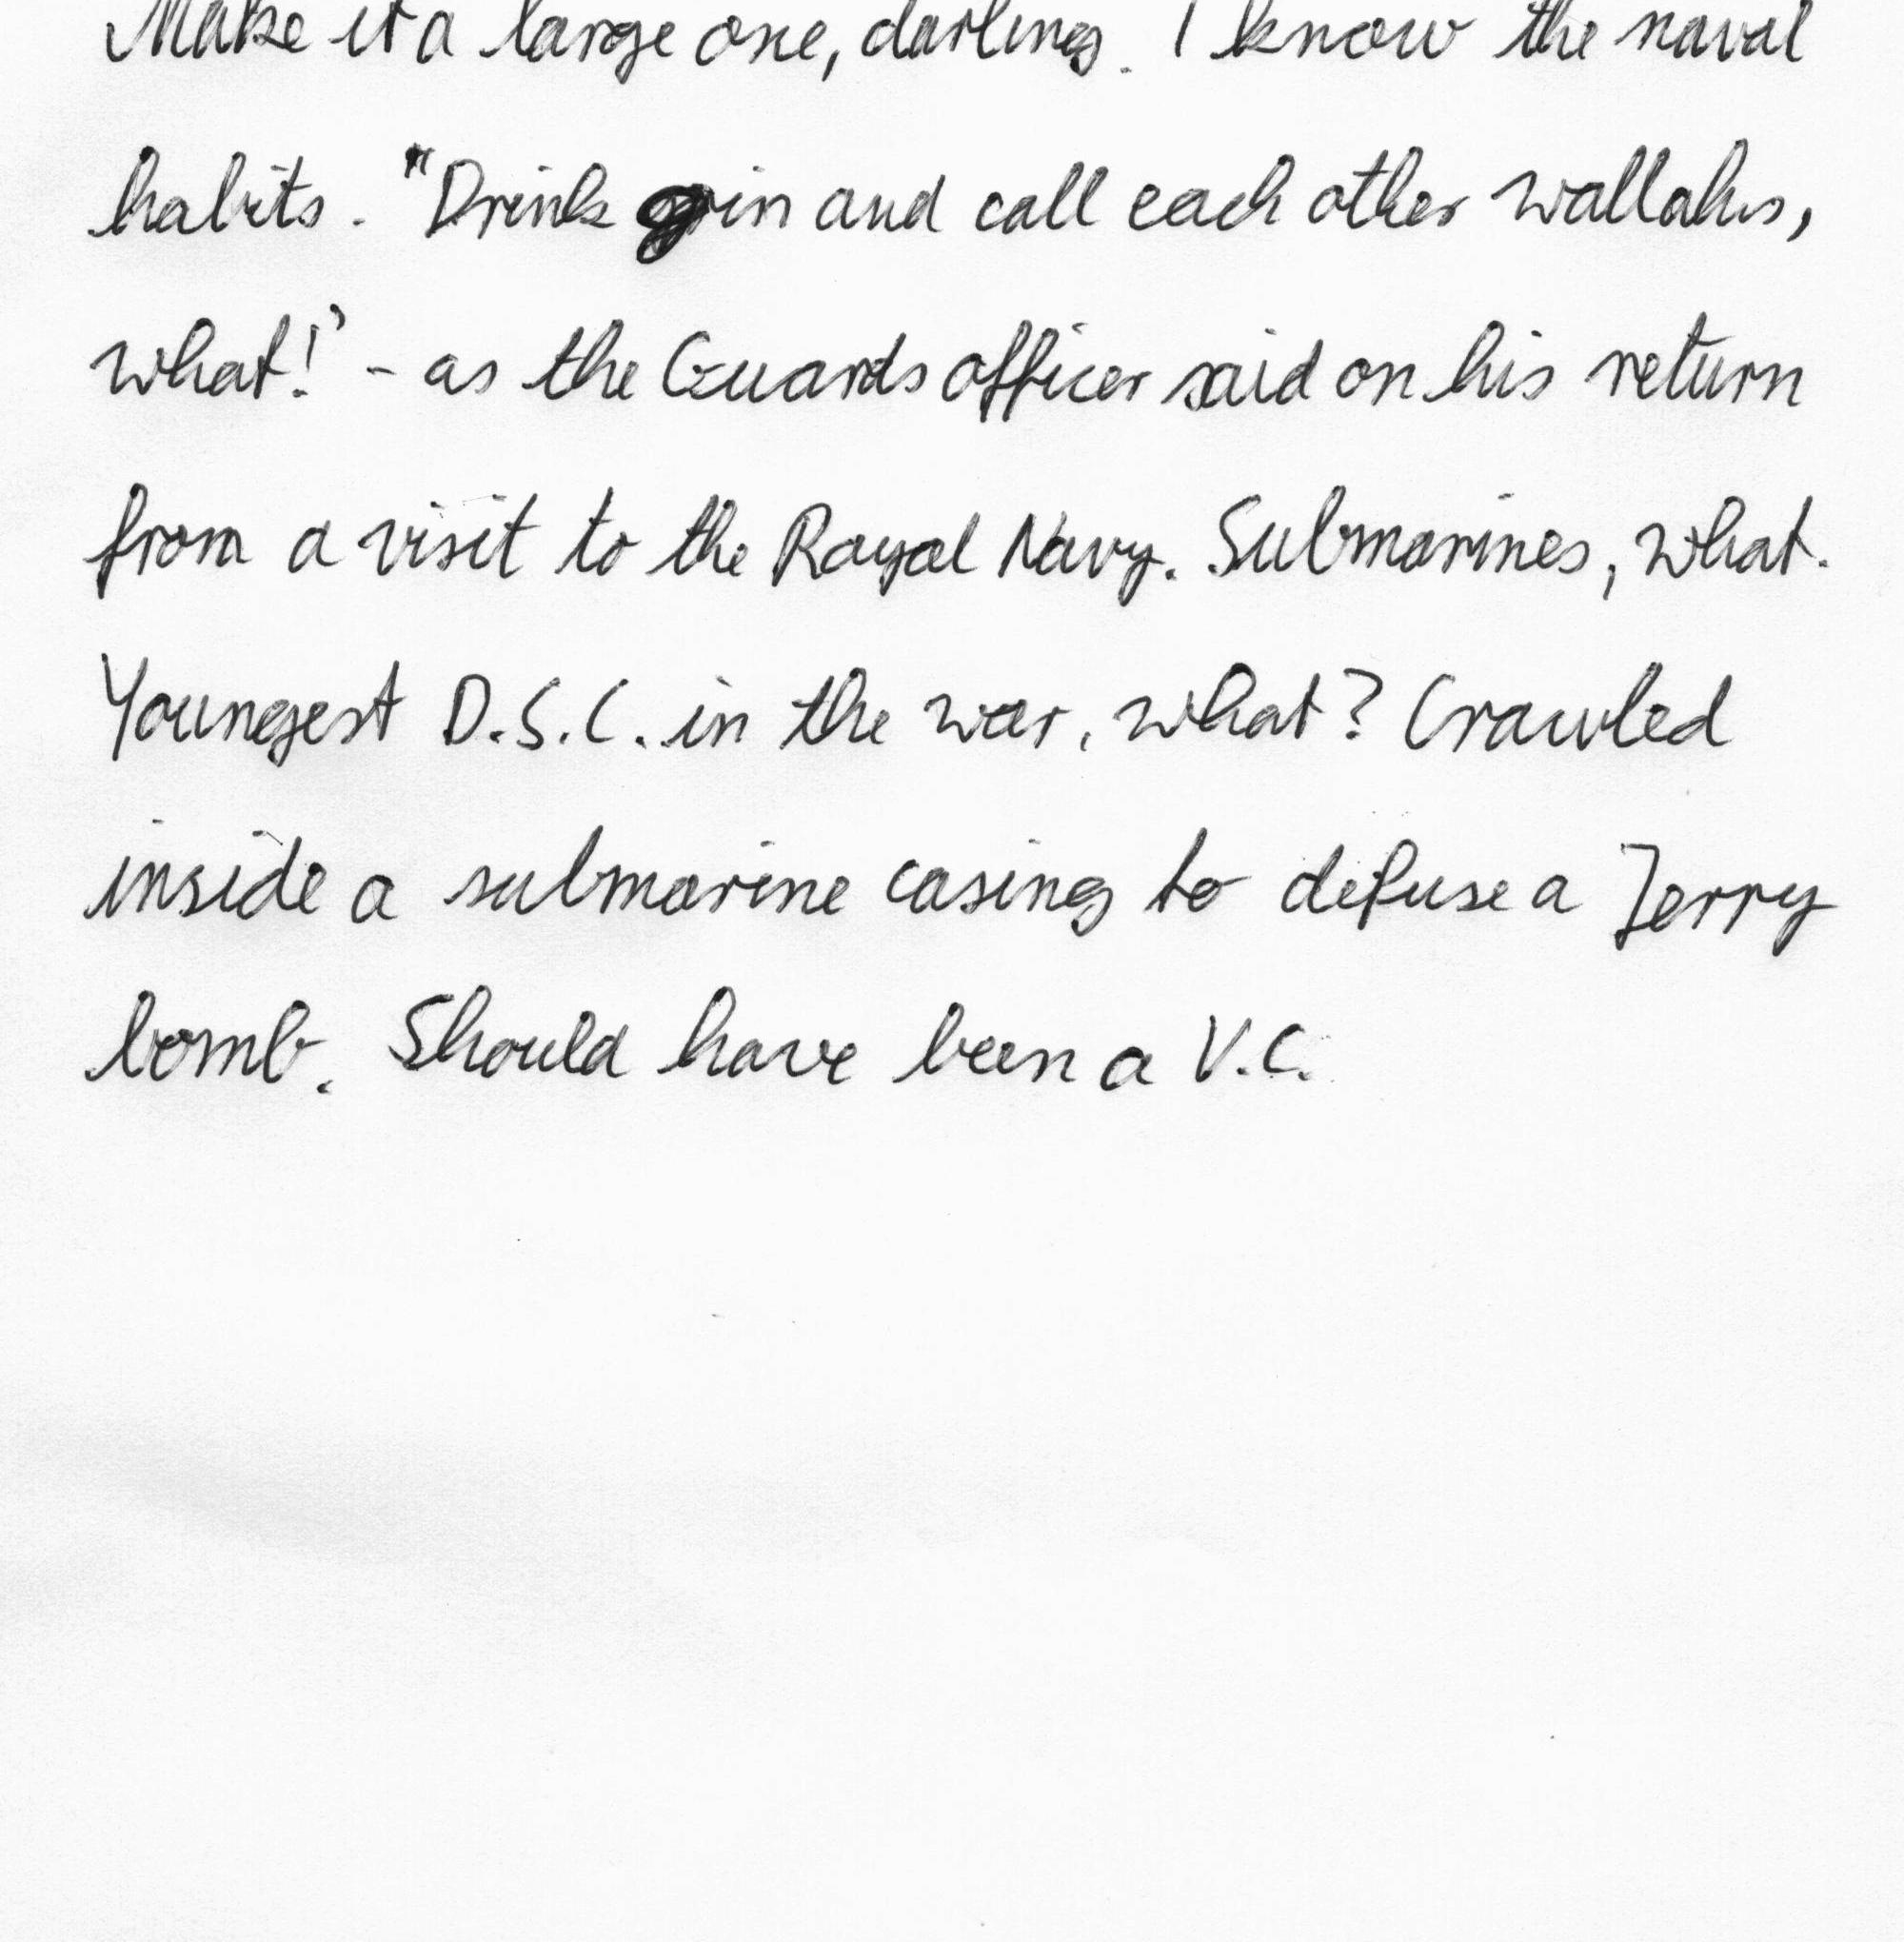 Make it a large one, darling. I know the naval
habits. "Drink gin and call each other wallahs,
what!" - as the Guards officer said on his return
from a visit to the Royal Navy. Submarines, what.
Youngest D.S.C. in the war, what? Crawled
inside a submarine casing to defuse a Jerry
bomb. Should have been a V.C.